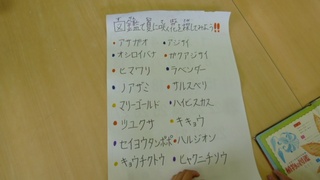 図鑑で夏に咲く花を探してみよう!!
・アサガオ ・アジサイ
・オシロイバナ ・ガクアジサイ
・ヒマワリ ・ラベンダー
・ノアザミ ・サルスベリ
・マリーゴールド ・ハイビスカス
・ツユクサ ・キキョウ
・セイヨウタンポポ ・ハルジオン
・キョウチクトウ ・ヒャクニチソウ